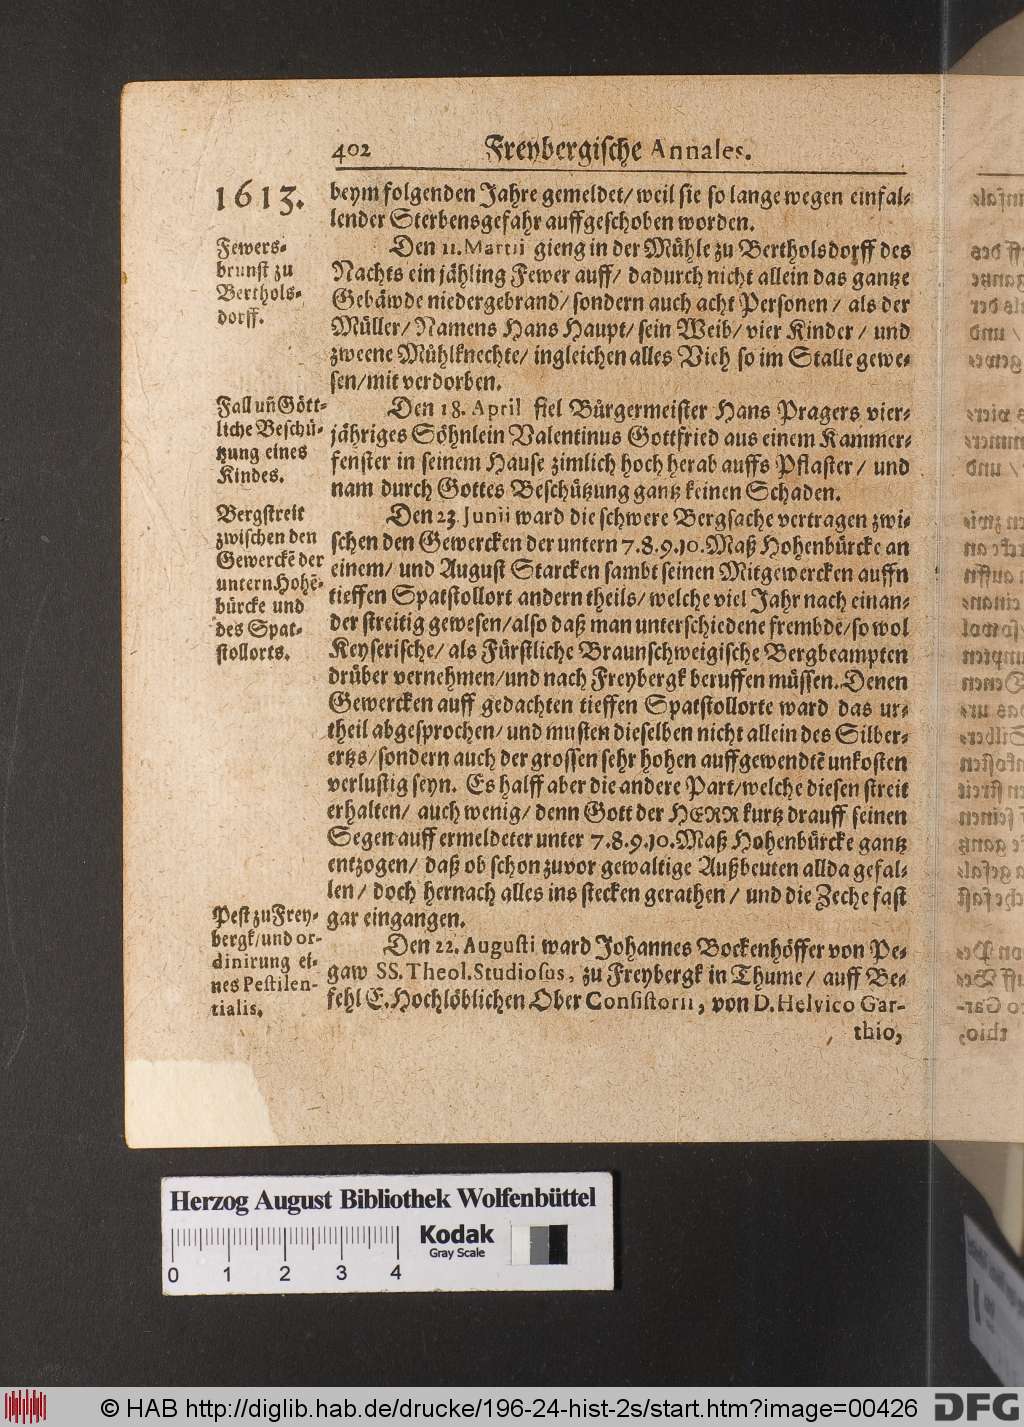 402 Freybergische Annales.
1613.
beym folgenden Jahre gemeldet/ weil sie so lange wegen einfal-
lender Sterbensgefahr auffgeschoben worden.
Fewers-
brunst zu
Berthols-
dorff.
Den 11. Martii gieng in der Mühle zu Bertholsdorff des
Nachts ein jähling Fewer auff/ dadurch nicht allein das gantze
Gebäwde niedergebrand/ sondern auch acht Personen/ als der
Müller/ Namens Hans Haupt/ sein Weib/ vier Kinder/ und
zweene Mühlknechte/ ingleichen alles Vieh so im Stalle gewe-
sen/ mit verdorben.
Fall uñ Gött-
liche Beschü-
tzung eines
Kindes.
Den 18. April fiel Bürgermeister Hans Pragers vier-
jähriges Söhnlein Valentinus Gottfried aus einem Kammer-
fenster in seinem Hause zimlich hoch herab auffs Pflaster/ und
nam durch Gottes Beschützung gantz keinen Schaden.
Bergstreit
zwischen den
Gewerckẽ der
untern Hohẽ-
bürcke und
des Spat-
stollorts.
Den 23. Junii ward die schwere Bergsache vertragen zwi-
schen den Gewercken der untern 7. 8. 9. 10. Maß Hohenbürcke an
einem/ und August Starcken sambt seinen Mitgewercken auffn
tieffen Spatstollort andern theils/ welche viel Jahr nach einan-
der streitig gewesen/ also daß man unterschiedene frembde/ so wol
Keyserische/ als Fürstliche Braunschweigische Bergbeampten
drüber vernehmen/ und nach Freybergk beruffen müssen. Denen
Gewercken auff gedachten tieffen Spatstollorte ward das ur-
theil abgesprochen/ und musten dieselben nicht allein des Silber-
ertzs/ sondern auch der grossen sehr hohen auffgewendtẽ unkosten
verlustig seyn. Es halff aber die andere Part/ welche diesen streit
erhalten/ auch wenig/ denn Gott der HERR kurtz drauff seinen
Segen auff ermeldeter unter 7. 8. 9. 10. Maß Hohenbürcke gantz
entzogen/ daß ob schon zuvor gewaltige Außbeuten allda gefal-
len/ doch hernach alles ins stecken gerathen/ und die Zeche fast
gar eingangen.
Pest zu Frey-
bergk/ und or-
dinirung ei-
nes Pestilen-
tialis.
Den 22. Augusti ward Johannes Bockenhöffer von Pe-
gaw SS. Theol. Studiosus, zu Freybergk in Thume/ auff Be-
fehl E. Hochlöblichen Ober Consistorii, von D. Helvico Gar-
thio,
Herzog August Bibliothek Wolfenbüttel
Kodak
Gray Scale
0 1 2 3 4
© HAB http://diglib.hab.de/drucke/196-24-hist-2s/start.htm?image=00426
DFG